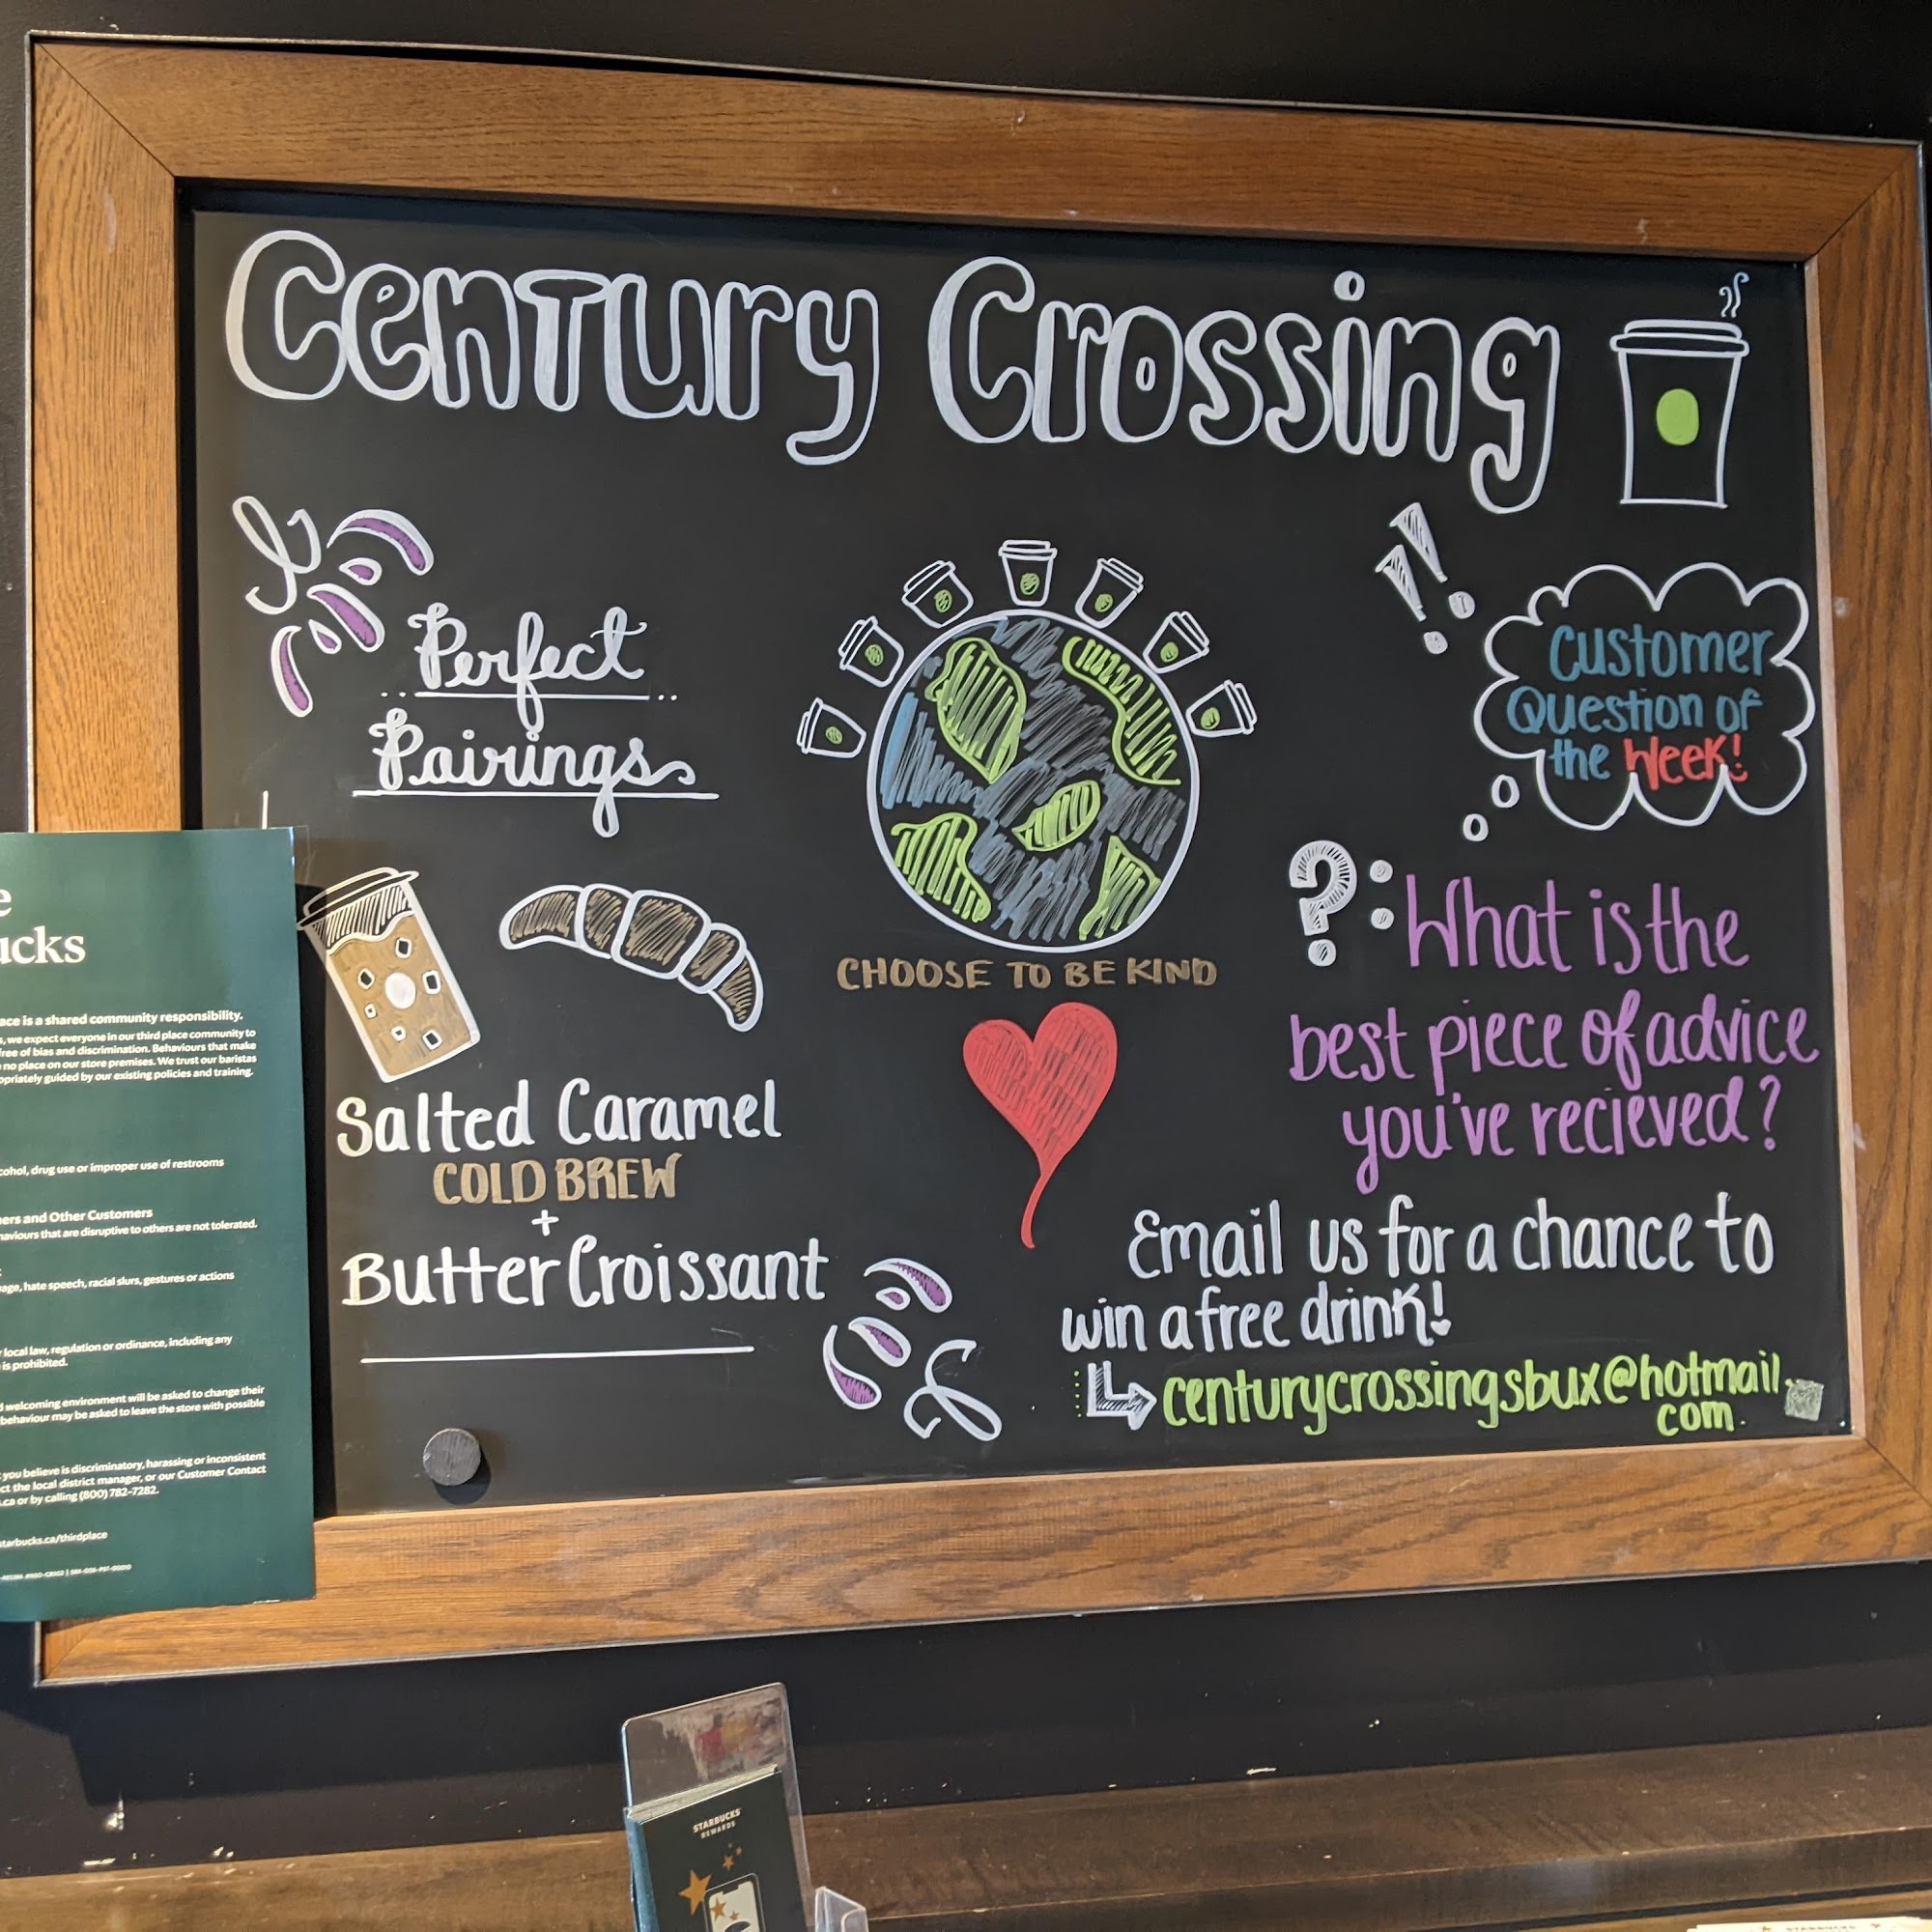 Century Crossing
Perfect
Pairings
Salted Caramel
COLD BREW
+
Butter Croissant
CHOOSE TO BE KIND
!!
Customer
Question of
the Week!
?: What is the
best piece of advice
you've recieved?
Email us for a chance to
win a free drink!
centurycrossingsbux@hotmail.
com
ucks
ace is a shared community responsibility.
s, we expect everyone in our third place community to
free of bias and discrimination. Behaviours that make
no place on our store premises. We trust our baristas
opriately guided by our existing policies and training.
cohol, drug use or improper use of restrooms
ers and Other Customers
haviours that are disruptive to others are not tolerated.
age, hate speech, racial slurs, gestures or actions
local law, regulation or ordinance, including any
is prohibited.
d welcoming environment will be asked to change their
behaviour may be asked to leave the store with possible
you believe is discriminatory, harassing or inconsistent
ct the local district manager, or our Customer Contact
.ca or by calling (800) 782-7282.
starbucks.ca/thirdplace
STARBUCKS
REWARDS